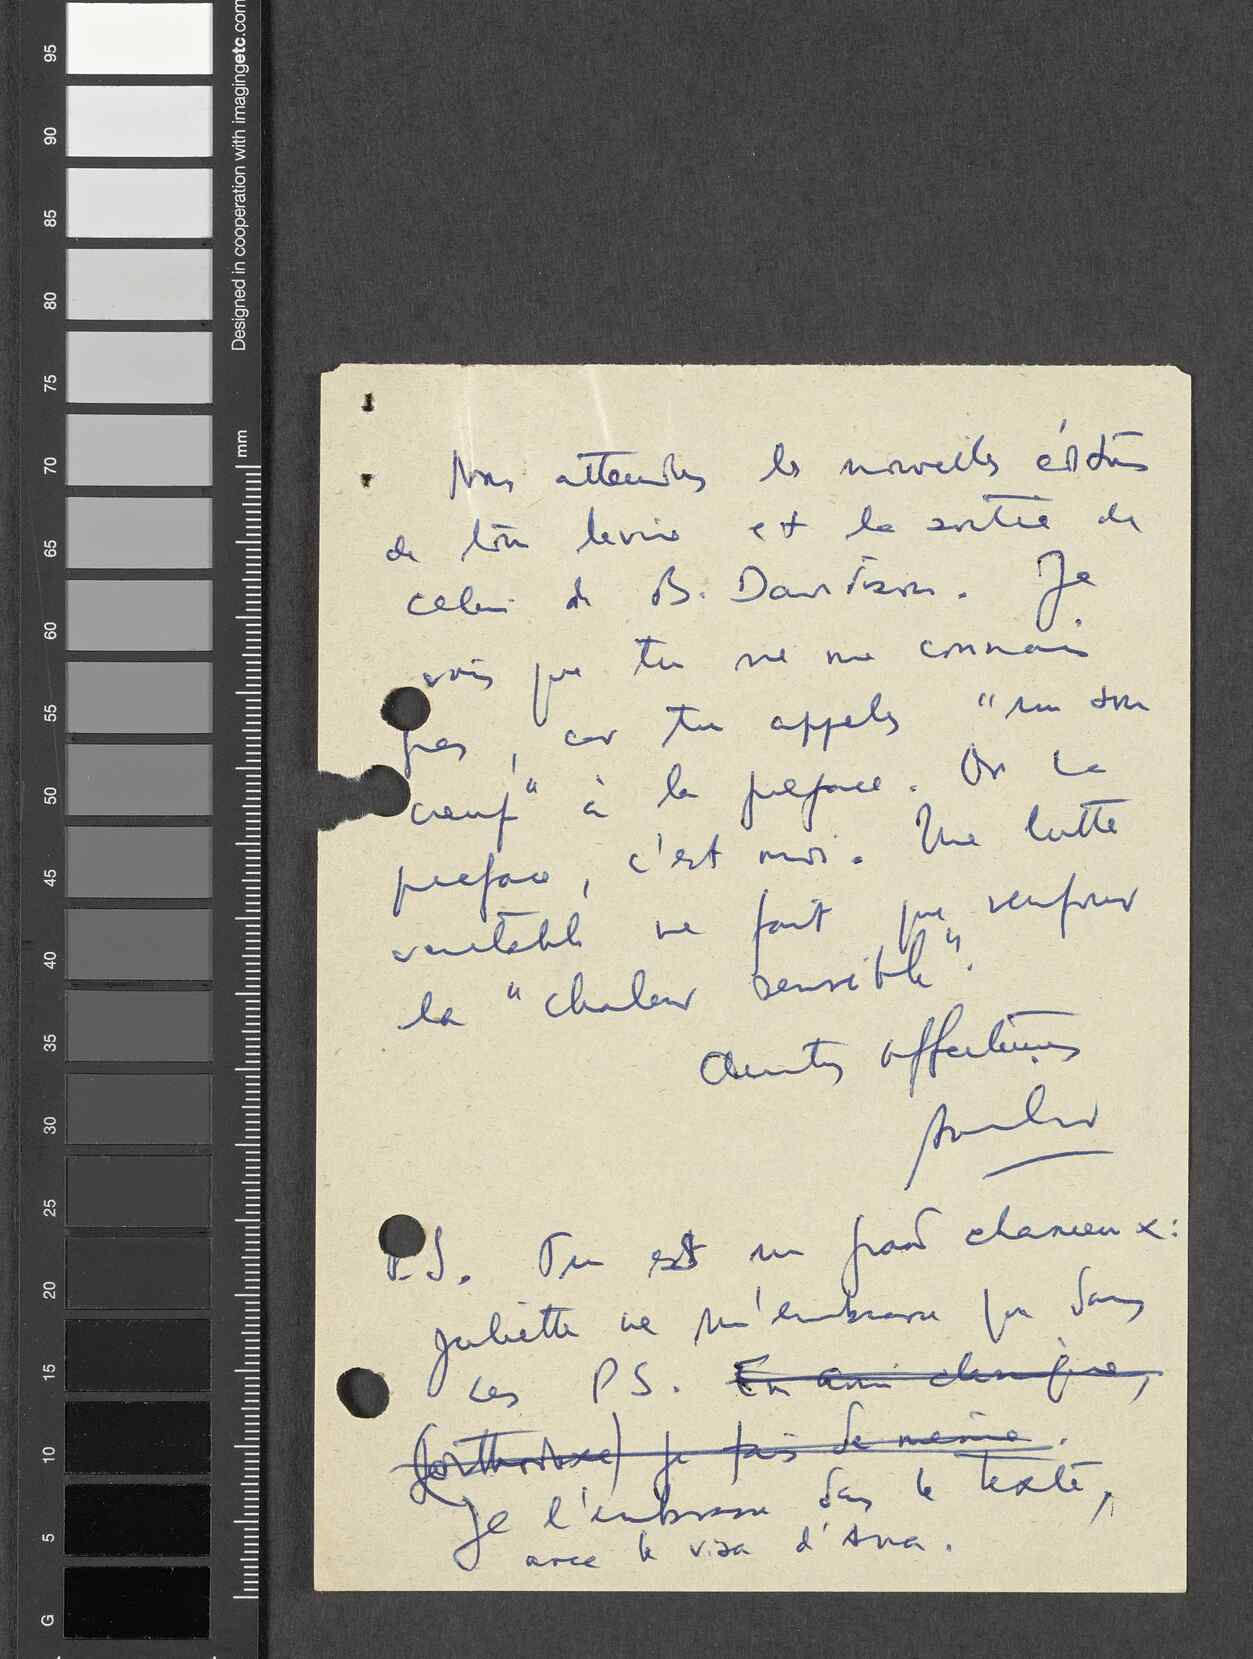 95
90
85
80
75
70
65
60
55
50
45
40
35
30
25
20
15
10
5
G
Designed in cooperation with imagingetc.com
mm
Nous attendons les nouvelles éditions
de ton livre et la sortie de
celui de B. Davidson. Je
vois que tu ne me connais
pas, car tu appelles "un son
creux" à la préface. Or la
préface, c'est moi. Une lutte
véritable ne fait que renforcer
la "chaleur sensible".
Amitiés affectueuses
P.S. Tu est un grand chanceux:
Juliette ne m'embrasse que dans
les PS. En ami classique,
(orthodoxe) je fais de même.
Je l'embrasse dans le texte,
avec le visa d'Ana.